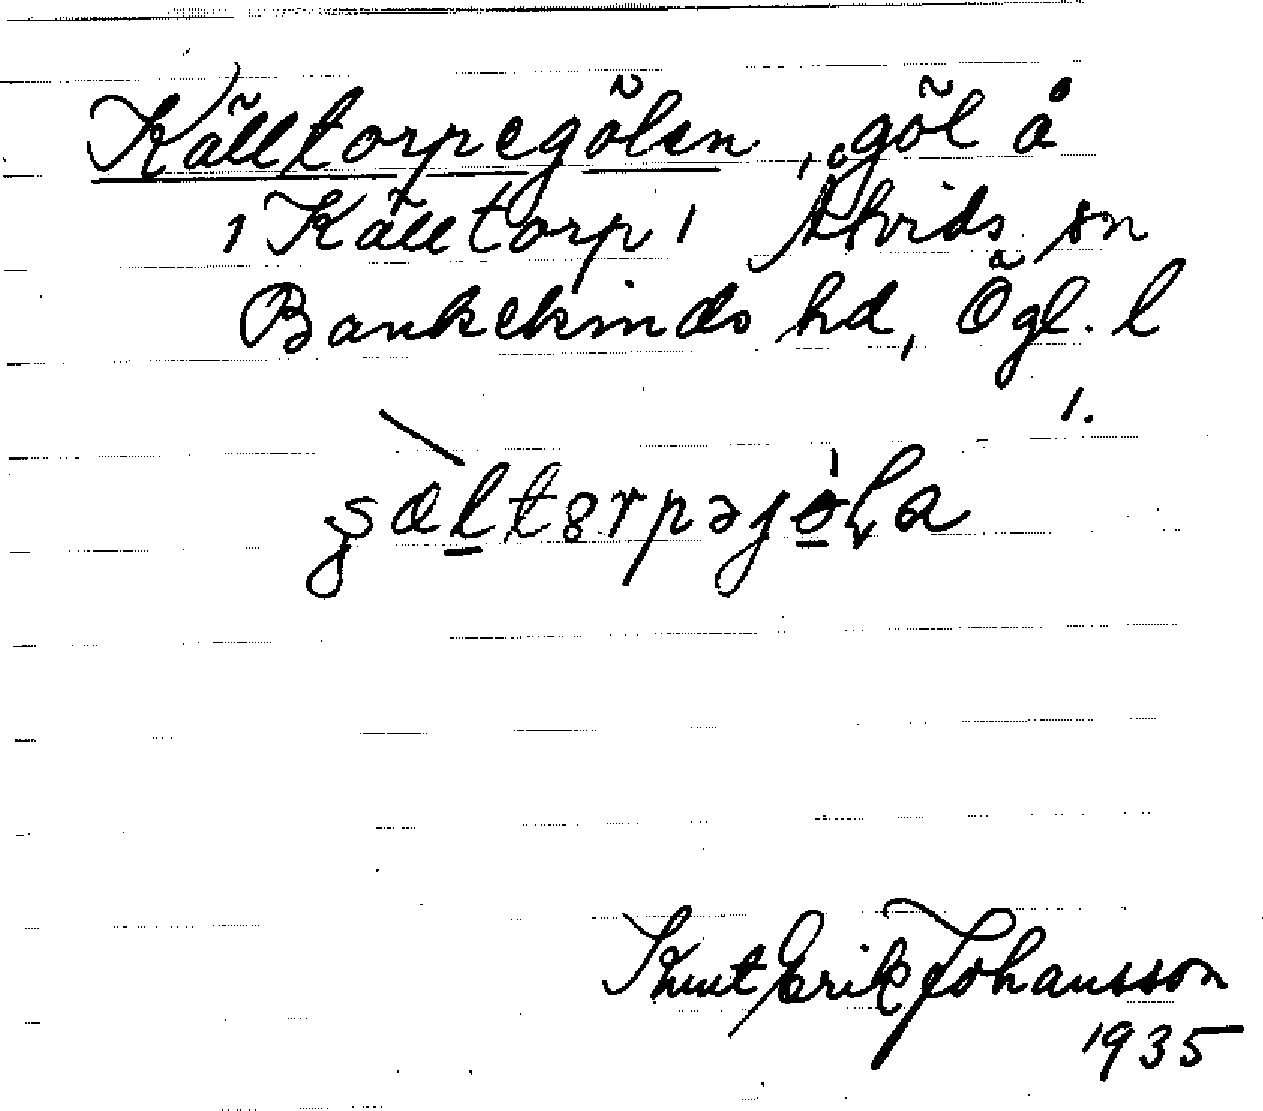 Källtorpegölen, göl å
1 Källtorp 1 Åtvids sn
Bankekinds hd, Ögl. l
1.
Knut Erik Johansson
1935